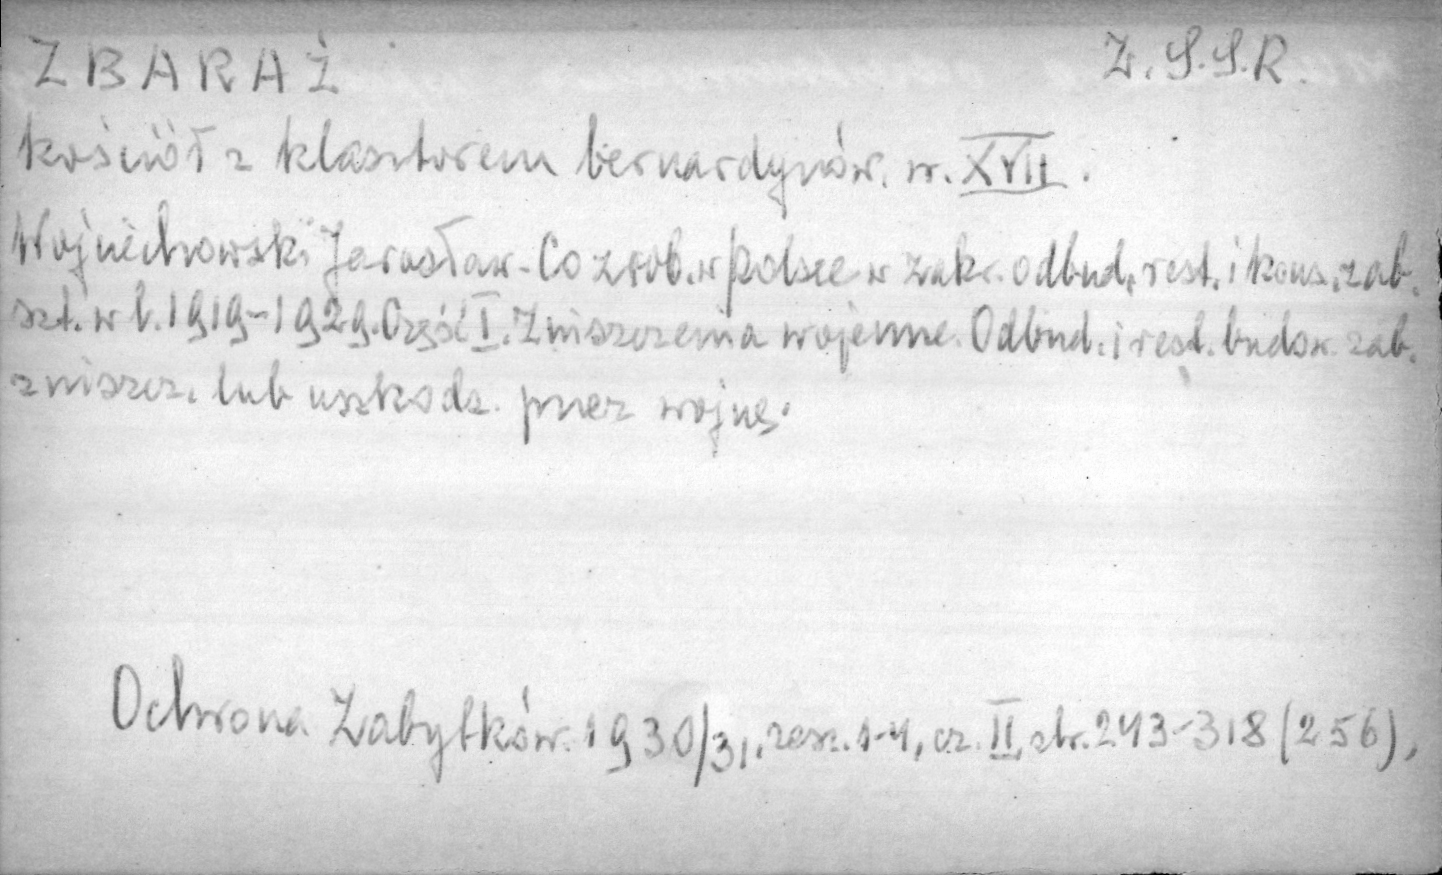 ZBARAŻ Z.S.S.R.
kościół z klasztorem bernardynów. w. XVII.
Wojciechowski Jarosław - Co zrob. w Polsce w zakr. odbud, rest. i kons. zab.
szt. w l. 1919-1929. Część I. Zniszczenia wojenne. Odbud. i rest. budow. zab.
zniszcz. lub uszkodz. przez wojnę.
Ochrona Zabytków. 1930/31, zesz. 1-4, cz. II, str. 243-318 (256),